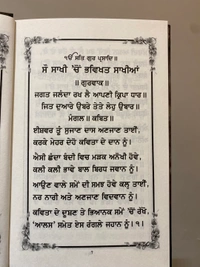 ੴ ਸਤਿ ਗੁਰ ਪ੍ਰਸਾਦਿ॥
ਸੌ ਸਾਖੀ 'ਚੋਂ ਭਵਿਖਤ ਸਾਖੀਆਂ
॥ ਗੁਰਵਾਕ॥
ਜਗਤ ਜਲੰਦਾ ਰਖ ਲੈ ਆਪਣੀ ਕ੍ਰਿਪਾ ਧਾਰ॥
ਜਿਤ ਦੁਆਰੇ ਉਬਰੇ ਤੇਤੇ ਲੇਹੁ ਉਬਾਰ॥
ਮੰਗਲ॥ ਕਬਿਤ॥
ਈਸ਼ਵਰ ਤੂੰ ਸੁਜਾਣ ਦਾਸ ਅਣਜਾਣ ਤਾਈਂ,
ਕਰਕੇ ਮੇਹਰ ਦੇਹੋ ਕਵਿਤਾ ਦੇ ਦਾਨ ਨੂੰ।
ਐਸੀ ਛੰਦਾ ਬੰਦੀ ਵਿਚ ਮੜਕ ਅਨੋਖੀ ਹੋਵੇ,
ਕਲੀ ਕਲੀ ਭਾਵੇ ਬਾਲ ਬਿਰਧ ਜਵਾਨ ਨੂੰ।
ਆਉਣ ਵਾਲੇ ਸਮੇਂ ਦੀ ਸਮਝ ਹੋਵੇ ਕਲੂ ਤਾਈਂ,
ਨਰ ਨਾਰੀ ਅਤੇ ਅਣਜਾਣ ਵਿਦਵਾਨ ਨੂੰ।
ਕਵਿਤਾ ਦੇ ਦੂਸ਼ਣ ਤੇ ਭਿਆਨਕ ਸਮੇਂ 'ਚੋਂ ਰੱਖੋ,
'ਆਲਸ' ਸਮੇਤ ਏਸ ਰੰਗਲੇ ਜਹਾਨ ਨੂੰ।੧।